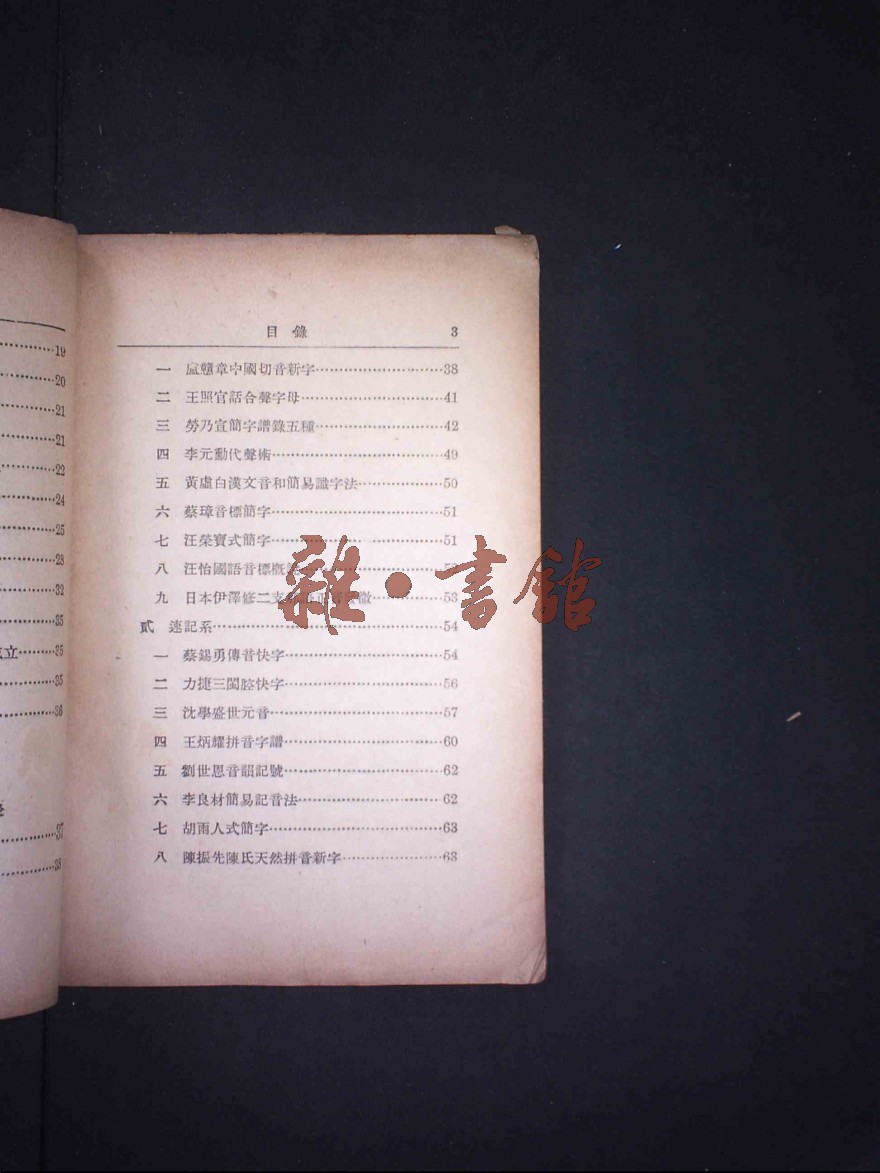 目錄 3
一 盧戇章中國切音新字 38
二 王照官話合聲字母 41
三 勞乃宣簡字譜錄五種 42
四 李元勳代聲術 49
五 黃虛白漢文音和簡易識字法 50
六 蔡璋音標簡字 51
七 汪榮寶式簡字 51
八 汪怡國語音標
九 日本伊澤修二支 53
貳 速記系 54
一 蔡錫勇傳音快字 54
二 力捷三閩腔快字 56
三 沈學盛世元音 57
四 王炳耀拼音字譜 60
五 劉世恩音韻記號 62
六 李良材簡易記音法 62
七 胡雨人式簡字 63
八 陳振先陳氏天然拼音新字 63
19
20
21
21
22
24
25
28
32
35
立 35
35
36
37
38
雜·書館